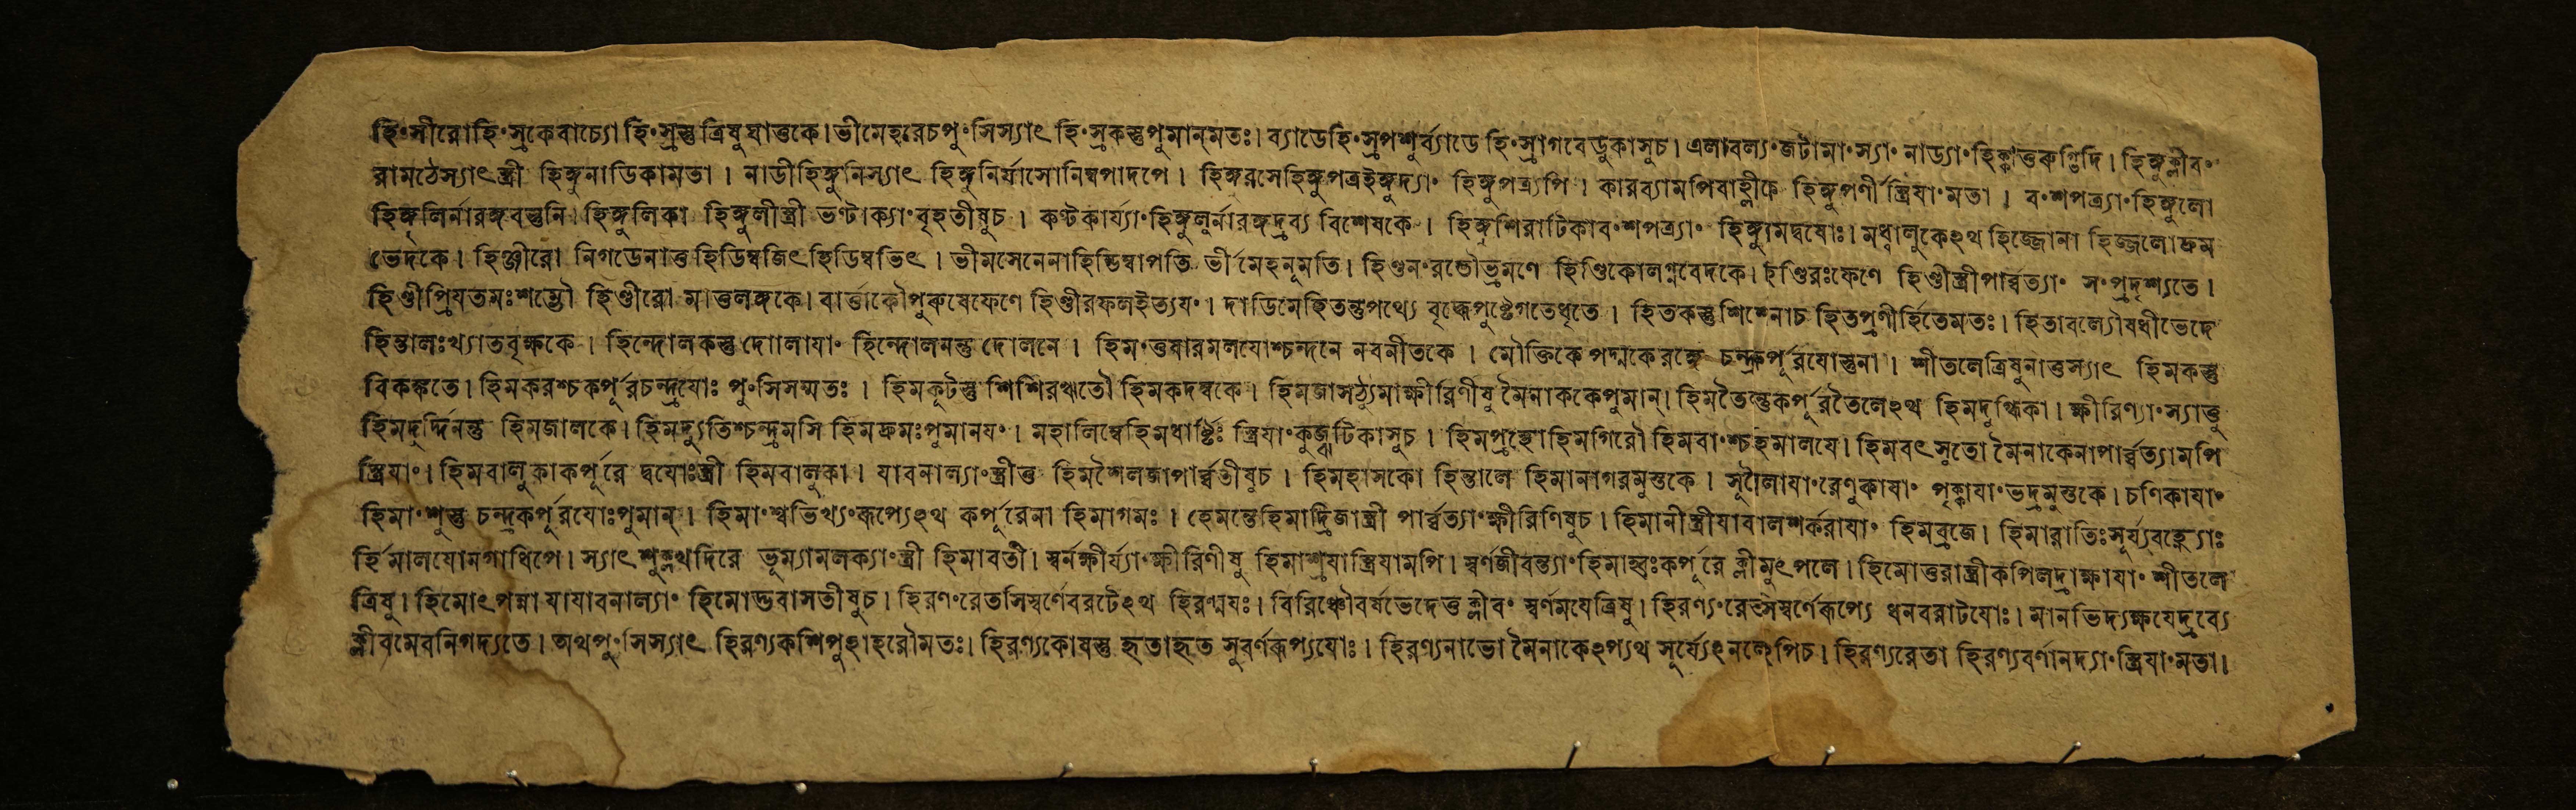 হিংসীরোহিংস্রকেবাচ্যো হিংস্রস্তু ত্রিষুঘাত্তকে।ভীমেহরেচপুংসিস্যাৎ হিংস্রকস্তুপুমান্মতঃ। ব্যাডেহিংস্রপশুর্ব্যাডে হিংস্রাগবেডুকাসুচ। এলাবল্যাংজটামাংস্যাং নাড্যাং হিঙ্গুক্লীবং
রামঠেস্যাৎস্ত্রী হিঙ্গুনাডিকামতা । নাডীহিঙ্গুনিস্যাৎ হিঙ্গুনির্যাসোনিম্বপাদপে । হিঙ্গুরসেহিঙ্গুপত্রইঙ্গুদ্যাং হিঙ্গুপত্র্যপি । কারব্যামপিবাহ্লীকে হিঙ্গুপর্ণী স্ত্রিযাংমতা । বংশপত্র্যাংহিঙ্গুলো
হিঙ্গুলির্নারঙ্গবস্তুনি। হিঙ্গুলিকা হিঙ্গুলীস্ত্রী ভণ্টাক্যাংবৃহতীষুচ । কণ্টকার্য্যাংহিঙ্গুলুর্নারঙ্গদ্রব্য বিশেষকে । হিঙ্গুশিরাটিকাবংশপত্র্যাং মধ্বালুকেঽথ হিজ্জোনা হিজ্জলোদ্রুম
ভেদকে। হিঞ্জীরো নিগডেনাত্ত হিডিম্বজিৎ হিডিম্বভিৎ । ভীমসেনেনাহিডিম্বাপতি র্ভীমেহনূমতি। হিণ্ডনংরন্তৌভ্রমণে হিণ্ডিকোলগ্নবেদকে। হিণ্ডিরঃফেণে হিণ্ডীস্ত্রীপার্ব্বত্যাং সংপ্রদৃশ্যতে।
হিণ্ডীপ্রিযতমঃশম্ভৌ হিণ্ডীরো মাত্তলঙ্গকে। বার্ত্তাকৌপুরুষেফেণে হিণ্ডীরফলইত্যযং। দাডিমেহিতন্তুপথ্যে বৃদ্ধেপুষ্টেগতেধৃতে । হিতকস্তুশিশ্নোচ হিতপ্রণীর্হিতেমতঃ। হিতাবল্যৌষধীভেদে
হিন্তালঃখ্যাতবৃক্ষকে । হিন্দোলকস্তু দোালাযাং হিন্দোলনন্তু দোলনে । হিমংত্তষারমলযোশ্চন্দনে নবনীতকে । মৌক্তিকে পদ্মকেরঙ্গে চন্দ্রকর্পূরযোস্তুনা। শীতলেত্রিষুনাত্তস্যাৎ হিমকস্তু
বিকঙ্কতে। হিমকরশ্চকর্পূরচন্দ্রযোঃ পুংসিসম্মতঃ । হিমকূটস্তু শিশিরঋতৌ হিমকদম্বকে। হিমজাসঠ্যুমাক্ষীরিণীষু মৈনাককেপুমান্। হিমতৈন্তুকর্পূরতৈলেঽথ হিমদুগ্ধিকা। ক্ষীরিণ্যাংস্যাত্তু
হিমদুর্দ্দিনন্তু হিমজালকে। হিমদ্যুতিশ্চন্দ্রমসি হিমদ্রুমঃপুমানযং। মহালিম্বেহিমধার্ষ্টিঃ স্ত্রিযাংকুজ্ঝটিকাসুচ । হিমপ্রস্থোহিমগিরৌ হিমবাংশ্চহমালযে। হিমবৎ সুতো মৈনাকেনাপার্ব্বত্যামপি
স্ত্রিযাং। হিমবালুকাকর্পূরে দ্বযোঃস্ত্রী হিমবালুকা। যাবনাল্যাংস্ত্রীত্ত হিমশৈলজাপার্ব্বতীষুচ । হিমহাসকো হিন্তালে হিমানাগরমুস্তকে । সুক্ষ্মৈলাযাংরেণুকাযাং পৃক্কাযাংভদ্রমুস্তকে। চণিকাযাং
হিমাংশুস্তু চন্দ্রকর্পূরযোঃপুমান্। হিমাংশ্বভিখ্যংরূপ্যেঽথ কর্পূরেনা হিমাগমঃ । হেমন্তেহিমাদ্রিজাস্ত্রী পার্ব্বত্যাংক্ষীরিণিষুচ। হিমানীস্ত্রীযাবালশর্করাযাং হিমব্রজে। হিমারাতিঃসূর্য্যবহ্ন্যোঃ
র্হিমালযোনগাধিপে। স্যাৎ শুক্লখদিরে ভূম্যামলক্যাংস্ত্রী হিমাবতী। স্বর্নক্ষীর্য্যাংক্ষীরিণীষু হিমাশ্রযাস্ত্রিযামপি। স্বর্ণজীবন্ত্যাংহিমাহ্বঃকর্পূরে ক্লীমুৎপলে। হিমোত্তরাস্ত্রীকপিলদ্রাক্ষাযাং শীতলে
ত্রিষু। হিমোৎপন্না যাযাবনাল্যাং হিমোদ্ভবাসতীষুচ। হিরণংরেতসিস্বর্ণেবরটেঽথ হিরণ্মযঃ। বিরিঞ্চৌবর্ষভেদেত্ত ক্লীবং স্বর্ণমযেত্রিষু। হিরণ্যংরেতসস্বর্ণেরূপ্যে ধনবরাটযোঃ। মানভিদ্যক্ষযেদ্রব্যে
ক্লীবমেবনিগদ্যতে। অথপুংসিস্যাৎ হিরণ্যকশিপুহাহরৌমতঃ। হিরণ্যকোষস্তু হৃতাহৃত সুবর্ণরূপ্যযোঃ। হিরণ্যনাভো মৈনাকেঽপ্যথ সূর্য্যেঽনলেপিচ। হিরণ্যরেতা হিরণ্যবর্ণানদ্যাংস্ত্রিযাংমতা।